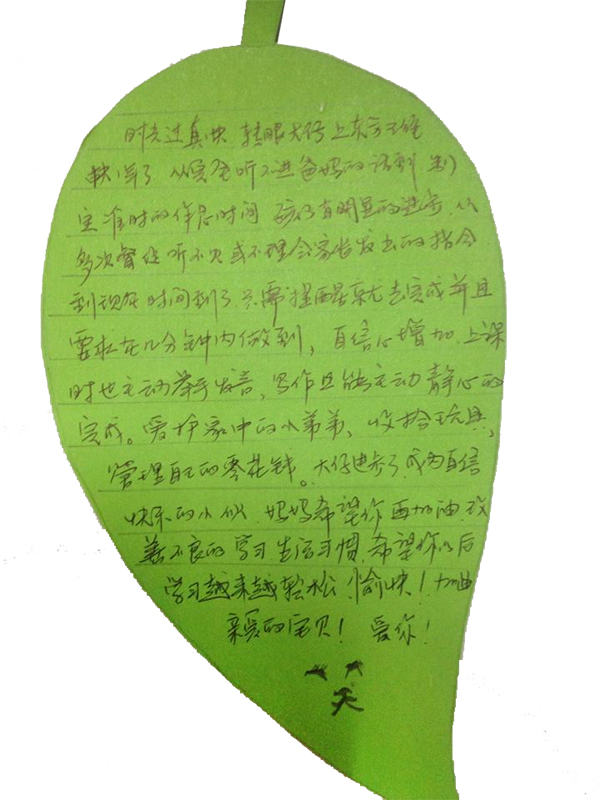 时光过真快 转眼大仔上东方
快1年了 从完全听不进爸妈的话到 制
定准时的作息时间 孩仔有明显的进步 从
多次督促听不见或不理会家长发出的指令
到现在时间到了只需提醒就去完成并且
要求在几分钟内做到，自信心增加，上课
时也主动举手发言，写作且能主动静心的
完成。爱护家中的小弟弟、收拾玩具，
管理自己的零花钱。大仔进步了，成为自信
快乐的小 妈妈希望你再加油，改
善不良的学习生活习惯，希望你以后
学习越来越轻松、愉快！加油
亲爱的宝贝！ 爱你！